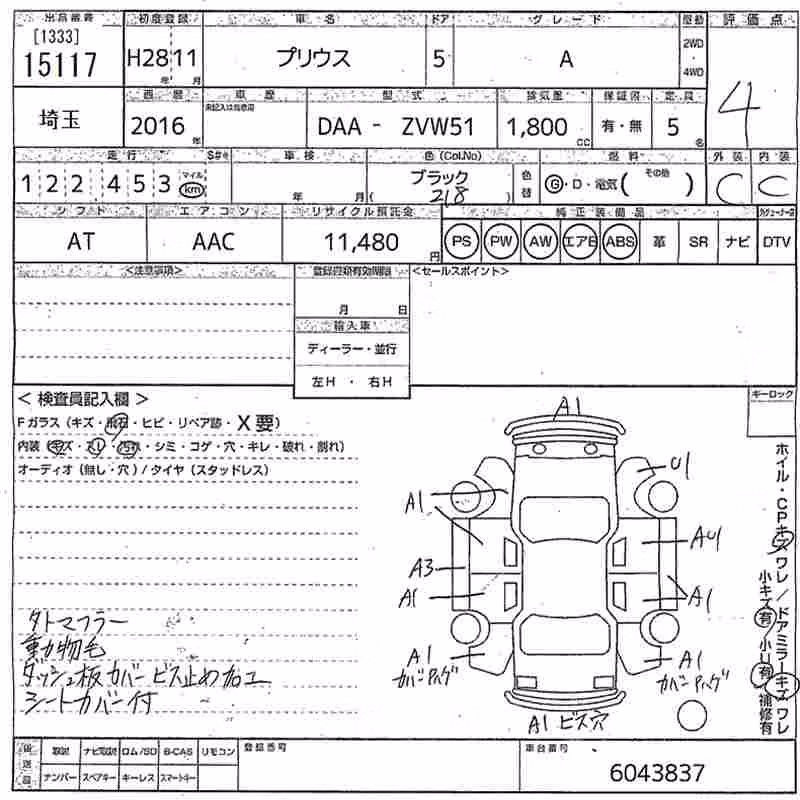 出品番号 初度登録 車名 ドア グレード 駆動 評価点
[1333]
15117 H28 11 プリウス 5 A 2WD・4WD 4
年 月
西暦 車歴 型式 排気量 保証書 定員
未記入は自家用
埼玉 2016年 DAA - ZVW51 1,800cc 有・無 5名
走行 S#有 車検 色(Col.No) 燃料 外装 内装
122453 マイル km 年 月 ブラック 218 ( ) 色替 G・D・電気( その他 ) C C
シフト エアコン リサイクル預託金 純正装備品
AT AAC 11,480円 PS PW AW エアB ABS 革 SR ナビ DTV
<注意事項> 登録書類有効期限 <セールスポイント>
月 日
輸入車
ディーラー・並行
左H ・ 右H
< 検査員記入欄 > キーロック
Fガラス(キズ・飛石・ヒビ・リペア跡・X要)
内装(キズ・スレ・汚れ・シミ・コゲ・穴・キレ・破れ・割れ)
オーディオ(無し・穴)/タイヤ(スタッドレス)
A1
U1
A1
AU1
A3
A1
A1
A1
カバーハゲ
A1
カバーハゲ
A1 ビス穴
ホイル・CPキズワレ/ドアミラーキズワレ
小キズ有/小U有/補修有
タトマフラー
動物毛
ダッシュ板カバービス止め加工
シートカバー付
後送品 取説 ナビ取説 ロム/SD B-CAS リモコン 登録番号 車台番号
ナンバー スペアキー キーレス スマートキー 6043837